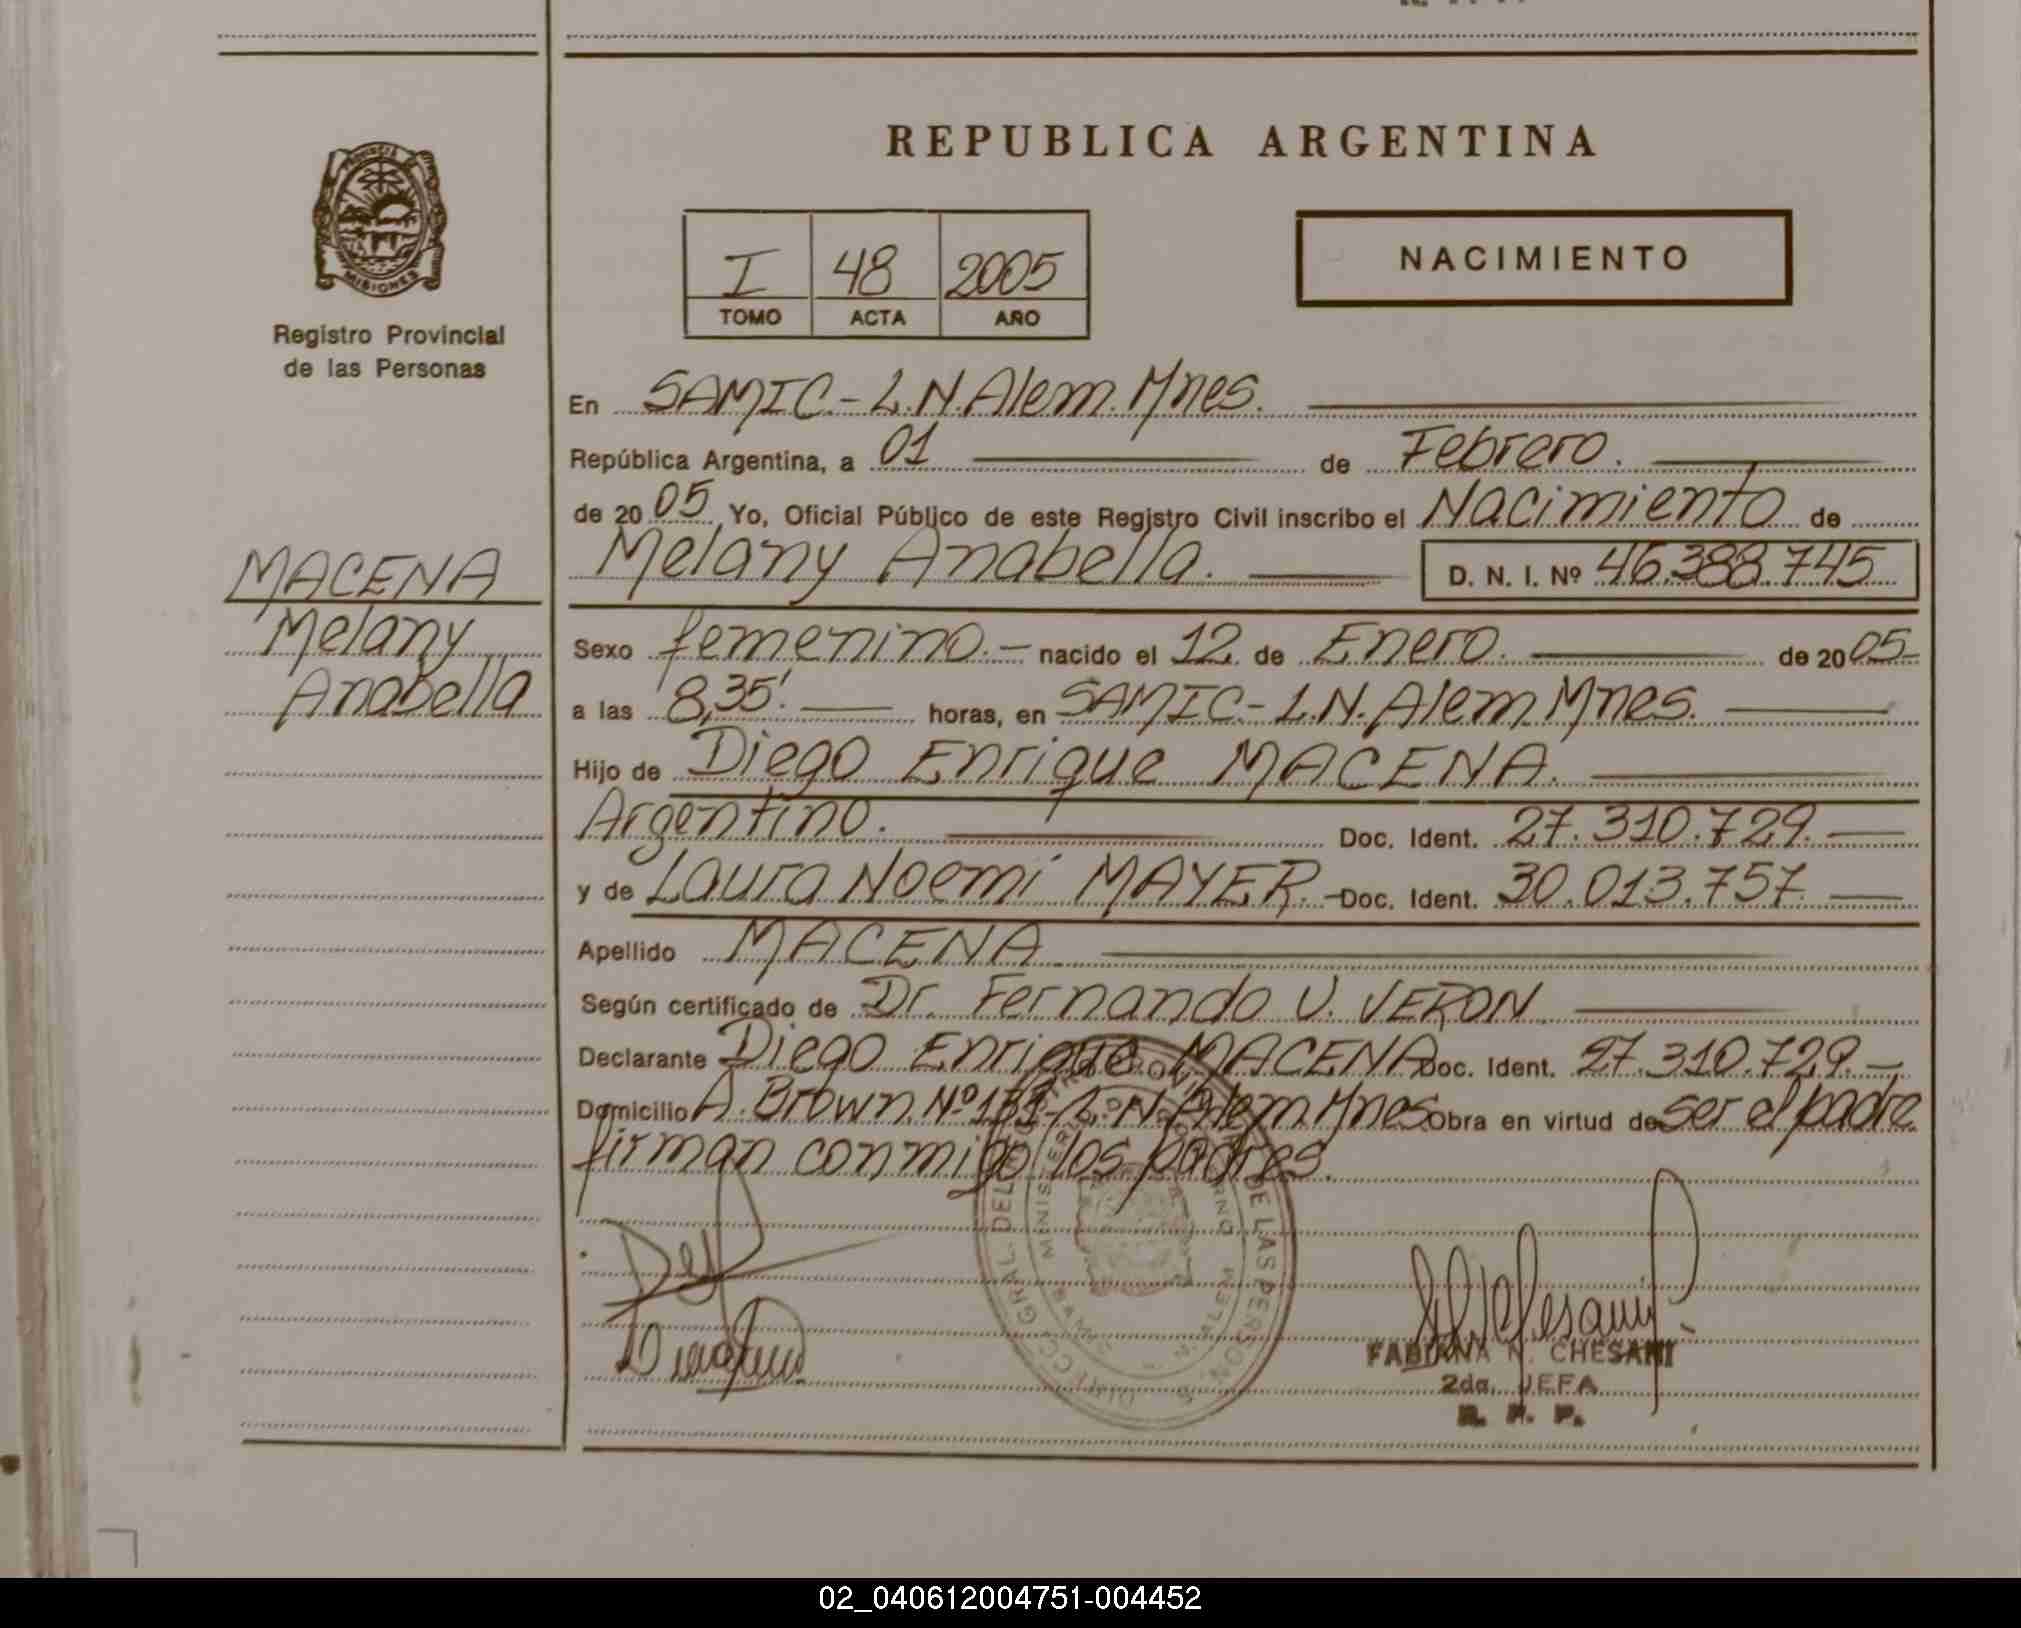 REPUBLICA ARGENTINA
PROVINCIA DE
MISIONES
Registro Provincial
de las Personas
I 48 2005
TOMO ACTA AÑO
NACIMIENTO
En SAMIC.- L.N.Alem. Mnes.
República Argentina, a 01 de Febrero.
de 2005 Yo, Oficial Público de este Registro Civil inscribo el Nacimiento de
Melany Anabella. D. N. I. Nº 46.388.745
MACENA
Melany
Anabella
Sexo femenino.- nacido el 12 de Enero. de 2005
a las 8,35' horas, en SAMIC-L.N. Alem Mnes.
Hijo de Diego Enrique MACENA.
Argentino. Doc. Ident. 27.310.729.
y de Laura Noemí MAYER.- Doc. Ident. 30.013.757
Apellido MACENA
Según certificado de Dr. Fernando U. VERON
Declarante Diego Enrique MACENA Doc. Ident. 27.310.729.-
Domicilio A. Brown. Nº L. N. Alem Mnes Obra en virtud de ser el padre
firman conmigo los padres.
DIRECC. GRAL. DEL DE LAS PERSONAS
MINISTERIO DE
ALEM
FABIANA N. CHESANI
2da. JEFA
R. P. P.
02_040612004751-004452